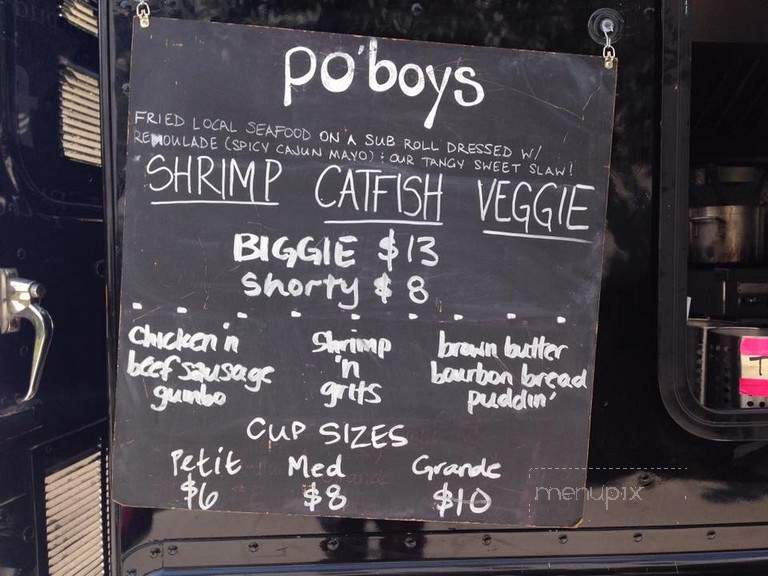 po'boys
FRIED LOCAL SEAFOOD ON A SUB ROLL DRESSED W/
REMOULADE (SPICY CAJUN MAYO) & OUR TANGY SWEET SLAW!
SHRIMP CATFISH VEGGIE
BIGGIE $13
Shorty $8
chicken 'n
beef sausage
gumbo
shrimp
'n
grits
brown butter
bourbon bread
puddin'
CUP SIZES
Petit Med Grande
$6 $8 $10
menupix